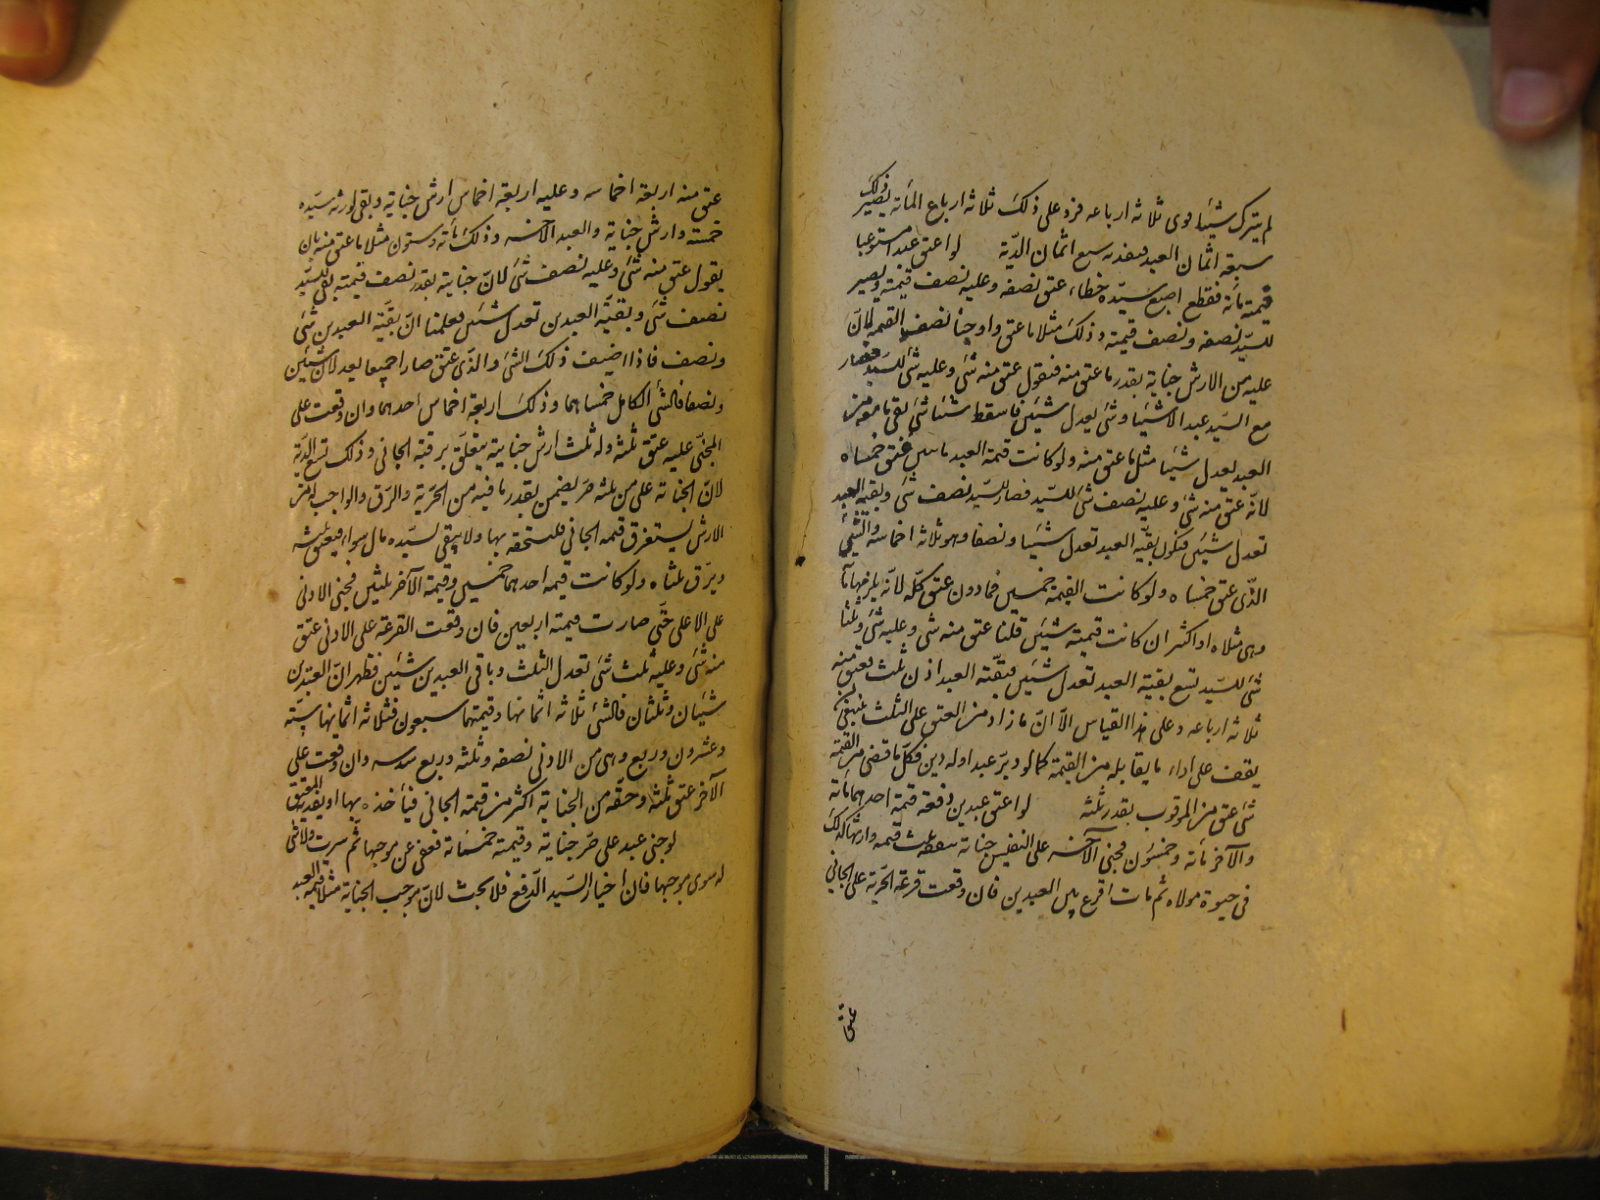 لم يترك شيئا سوى ثلاثة ارباعه فزد على ذلك ثلاثة ارباع المائة يصير ذلك
سبعة اثمان العبد فيفديه بسبع اثمان الدّية لو اعتق عبدا مستوعبا
قيمته مائة فقطع اصبع سيّده خطاء عتق نصفه وعليه نصف قيمته ويصير
للسيّد نصفه ونصف قيمته وذلك مثلا ما عتق واوجبنا نصف القيمة لانّ
عليه من الارش جناية بقدر ما عتق منه فنقول عتق منه شئ وعليه شئ للسيّد فصار
مع السيّد عبد الا شيئا وشئ يعدل شيئين فاسقط شيئا بشئ بقى ما معه من
العبد يعدل شيئا مثل ما عتق منه ولو كانت قيمة العبد مائتين عتق خمساه
لانّه عتق منه شئ وعليه نصف شئ للسيّد فصار للسيّد نصف شئ وبقيّة العبد
تعدل شيئين فيكون بقيّة العبد تعدل شيئا ونصفا وهو ثلاثة اخماسه والشئ
الذّى عتق خمساه ولو كانت القيمة خمسين فما دون عتق كلّه لانّه يلزمه مائة
وهى مثلاه او اكثر ان كانت قيمته ستين قلنا عتق منه شئ وعليه شئ وثلثا
شئ للسيّد تبع بقيّة العبد تعدل شيئين فبقيّة العبد اذن ثلث فعتق منه
ثلاثة ارباعه وعلى هذا القياس الاّ انّ ما زاد من العتق على الثلث ينبغى ان
يقف على اداء ما يقابله من القيمة كما لو دبّر عبدا وله دين فكلّ ما قضى من القيمة
شئ عتق من الموقوف بقدر ثلثه لو اعتق عبدين دفعة قيمة احدهما مائة
والآخر مائة وخمسون فجنى الادنى على النفيس جناية نقصته ثلث قيمته وارشها كذلك
فى حيوة مولاه ثم مات اقرع بين العبدين فان وقعت قرعة الحرّية على الجانى
عتق
عتق منه اربعة اخماسه وعليه اربعة اخماس ارش جنايته وبقى لورثة سيّده
خمسه وارش جنايته والعبد الآخر وذلك مائة وستون مثلا ما عتق منه بان
يقول عتق منه شئ وعليه نصف شئ لانّ جنايته بقدر نصف قيمته بقى للسيّد
نصف شئ وبقيّة العبدين تعدل شيئين فعلمنا انّ بقيّة العبدين شئ
ونصف فاذا اضيف ذلك الشئ والذّى عتق صارا جميعا يعدلان شيئين
ونصفا فالشئ الكامل خمساهما وذلك اربعة اخماس احدهما وان وقعت على
المجنّى عليه عتق ثلثه وله ثلث ارش جنايته يتعلّق برقبة الجانى وذلك تسع الدّية
لانّ الجناية على من ثلثه حرّ يضمن بقدر ما فيه من الحرّية والرّق والواجب له من
الارش يستغرق قيمة الجانى فيستحقه بها ولا يبقى لسيّده مال سواه فيعتق ثلثه
ويرق ثلثاه ولو كانت قيمة احدهما خمسين وقيمة الآخر ثلثين فجنى الادنى
على الاعلى حتّى صارت قيمته اربعين فان وقعت القرعة على الادنى عتق
منه شئ وعليه ثلث شئ تعدل الثلث وباقى العبدين شيئين فظهر انّ العبدين
شيئان وثلثان فالشئ ثلاثة اثمانها وقيمتهما سبعون فثلاثة اثمانها ستّة
وعشرون وربع وهى من الادنى نصفه وثلثه وربع سدسه وان وقعت على
الآخر عتق ثلثه وحقّه من الجناية اكثر من قيمة الجانى فيأخذه بها او يفديه المعتق
لو جنى عبد على حرّ جناية وقيمته خمسمائة فعفى عن موجبها ثمّ سرت ولا شئ
له سوى موجبها فان اختار السيّد الدّفع فلا بحث لانّ موجب الجناية مثلا قيمة العبد